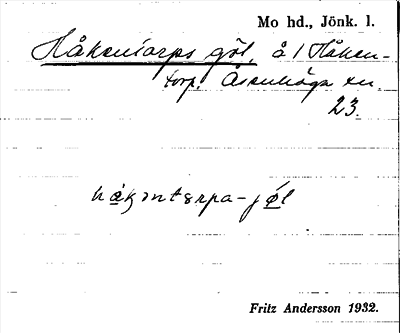 Mo hd., Jönk. l.
Håkentorps göl, å / Håken-
torp. Åsenhöga sn.
23.
håkəntərpa-jøl
Fritz Andersson 1932.